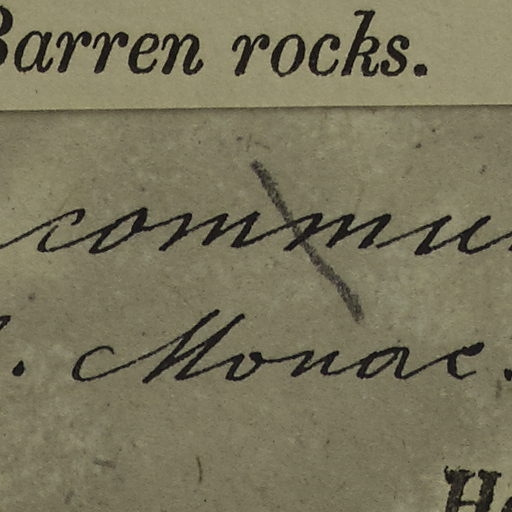 Barren rocks.
commu
. Monac.
H